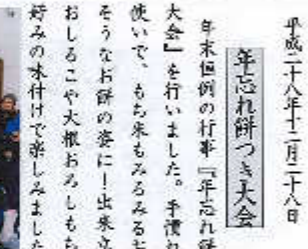 平成二十八年十二月二十八日
年忘れ餅つき大会
年末恒例の行事『年忘れ餅
大会』を行いました。手慣れ
使いで、もち米もみるみるお
そうなお餅の姿に!出来立
おしるこや大根おろしもち
好みの味付けで楽しみました